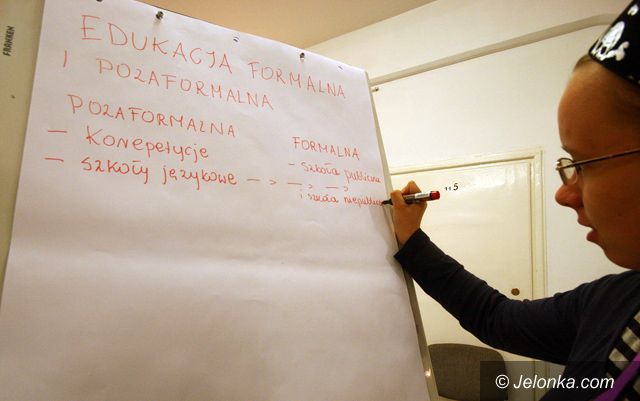 EDUKACJA FORMALNA
I POZAFORMALNA
POZAFORMALNA
- Konepetycje
- szkoły językowe - > - > - >
FORMALNA
- szkoła publiczna
i szkoła niepublicz
FRANKEN
115
© Jelonka.com